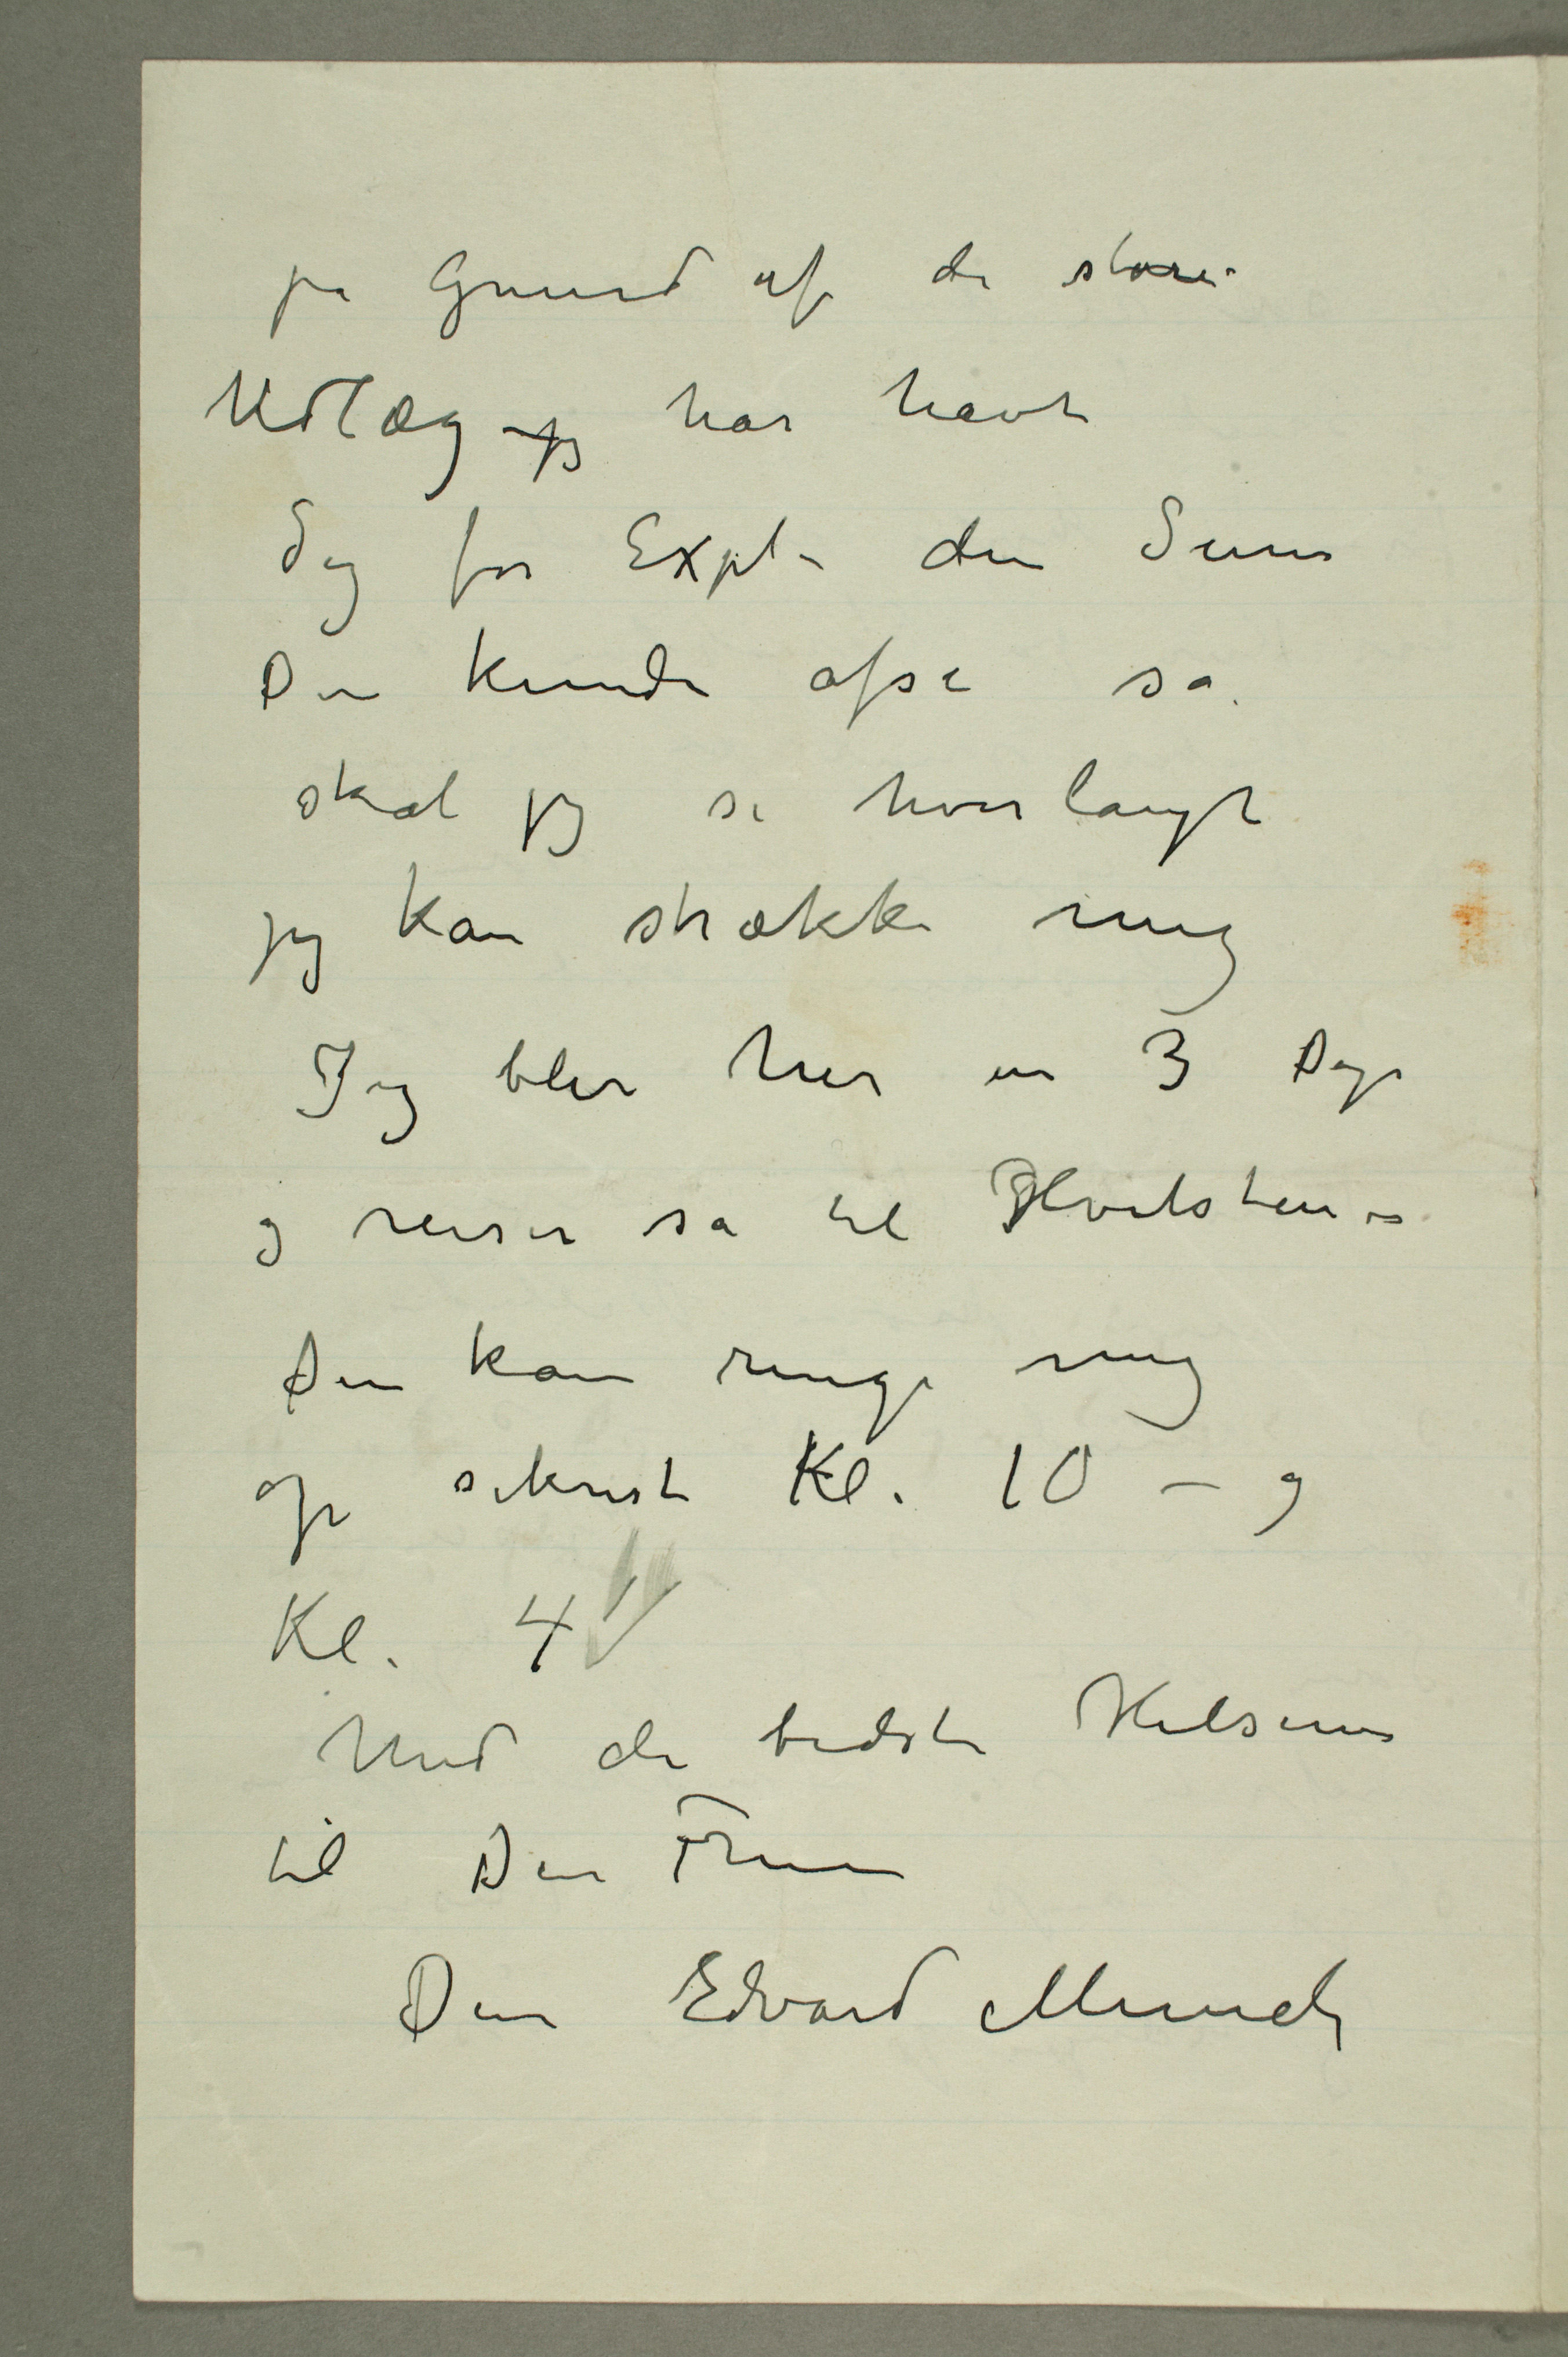 på Grund af de store
Udlæg jeg har havt
Sig for Expl. den Sum
De kunde afse så
skal jeg se hvor langt
jeg kan strække mig
Jeg blir her en 3 Dage
og reiser så til Hvitsten –
De kan ringe mig
op sikrest Kl. 10 – og
Kl. 4
Med de bedste Hilsener
til Din Frue
Din Edvard Munch